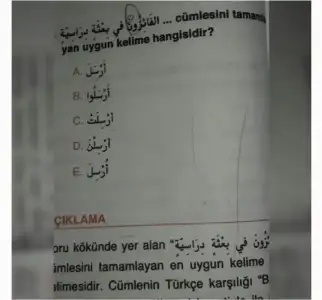 ... الفَائِزُونَ فِي بِعْثَةٍ دِرَاسِيَّةٍ cümlesini tamamla
yan uygun kelime hangisidir?
A. أَرْسَلَ
B. أَرْسَلُوا
C. أَرْسِلَتْ
D. أَرْسِلْنَ
E. أُرْسِلَ
ÇIKLAMA
oru kökünde yer alan "زُونَ فِي بِعْثَةٍ دِرَاسِيَّةٍ
ümlesini tamamlayan en uygun kelime
elimesidir. Cümlenin Türkçe karşılığı "B